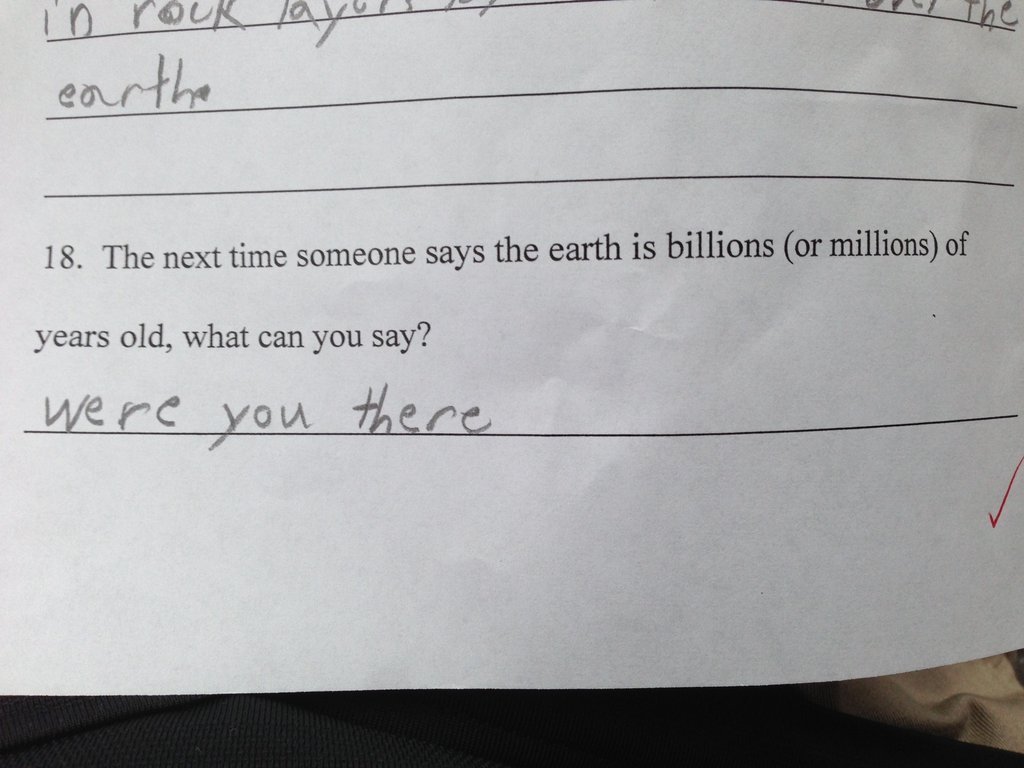 in rock layers the
earth
18. The next time someone says the earth is billions (or millions) of
years old, what can you say?
were you there